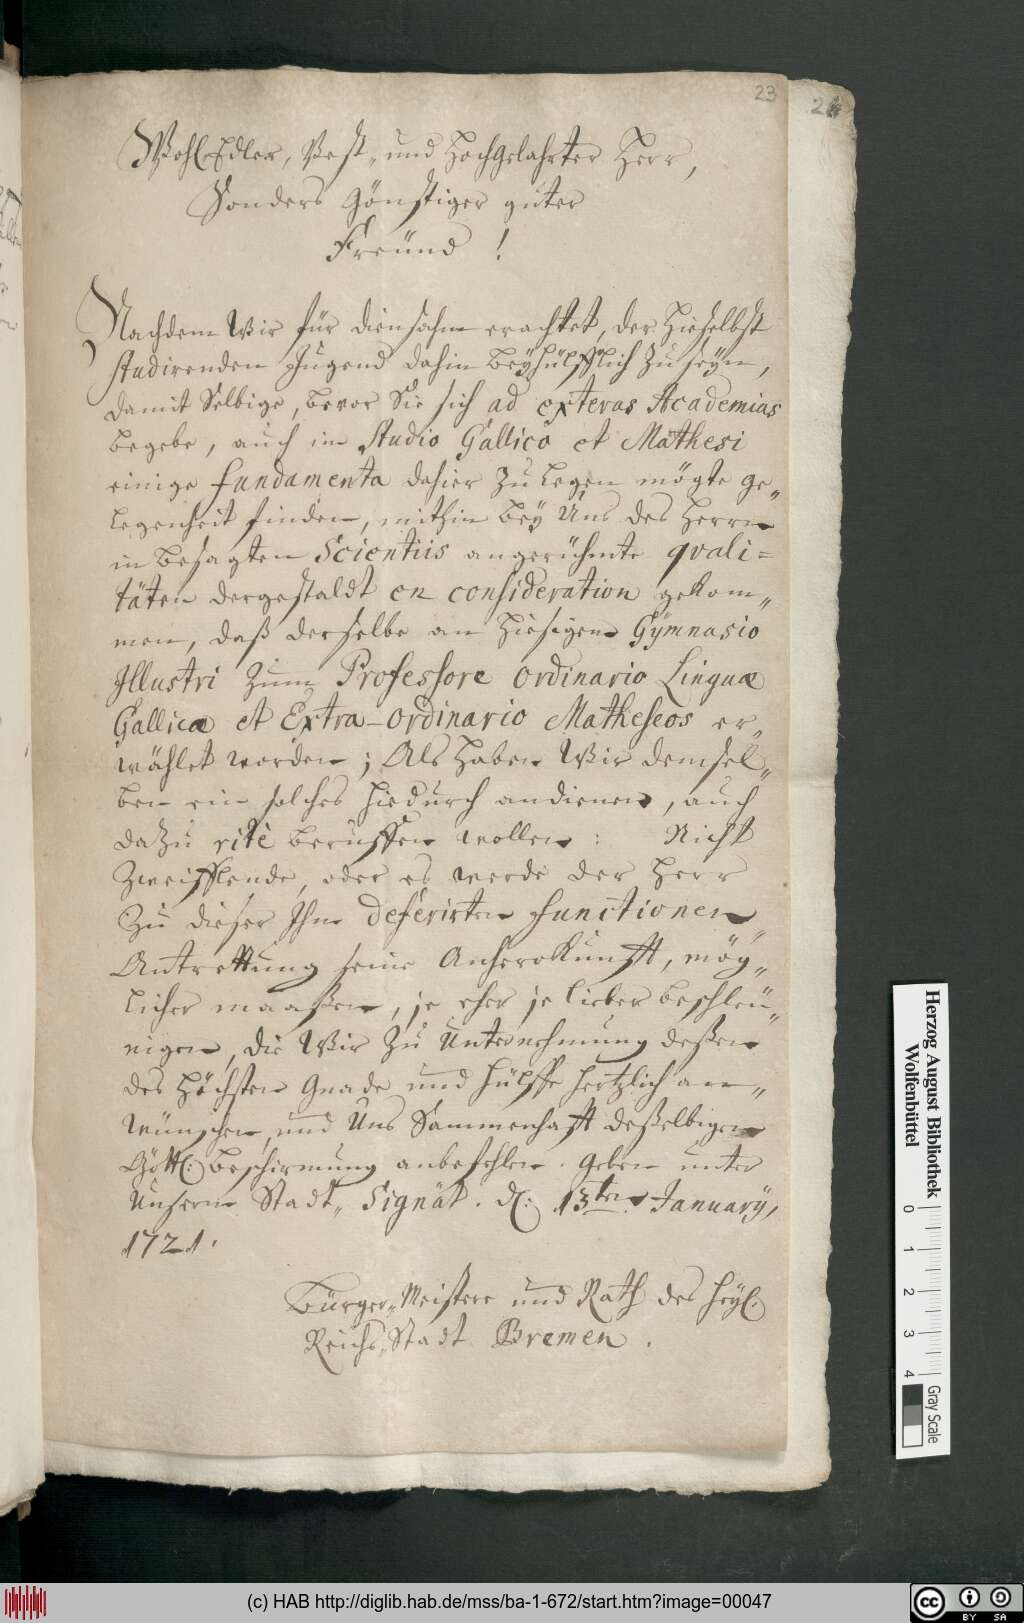 23
24
WohlEdler, Vest„ und Hochgelahrter Herr,
Sonders Gönstiger guter
Freünd !
Nachdem Wir für diensahm erachtet, der hieselbst
studirenden Jugend dahin beyhülfflich zu seyn,
damit Selbige, bevor Sie sich ad exteras Academias
begebe, auch in Studio Gallico et Mathesi
einige fundamenta dahier zu legen mögte ge„
legenheit finden, mithin bey Uns des Herrn
in besagten Scientiis angerühmte qvali=
täten dergestaldt en consideration gekom„
men, daß derselbe an hiesigem Gymnasio
Illustri zum Professore Ordinario Linguæ
Gallicæ et Extra-Ordinario Matheseos er„
wählet worden; Als haben Wir demsel„
ben ein solches hiedurch andienen, auch
dazu ritè beruffen wollen: Nicht
zweifflende, oder es werde der Herr
zu dieser Ihm deferirten functionen
Antrettung seine Anherokunfft, mög„
licher maaßen, je eher je lieber beschleü„
nigen, die Wir zu Unternehmung deßen
des Höchsten Gnade und hülffe hertzlich an„
wünschen, und Uns Sammenhafft deßelbigen
Göttl: beschirmung anbefehlen. Geben unter
Unserm Stadt„ Signät. d: 13ten January,
1721.
Bürger„Meistere und Rath des heyl:
Reichs„Stadt Bremen.
Herzog August Bibliothek
Wolfenbüttel
0 1 2 3 4
Gray Scale
(c) HAB http://diglib.hab.de/mss/ba-1-672/start.htm?image=00047
cc BY SA